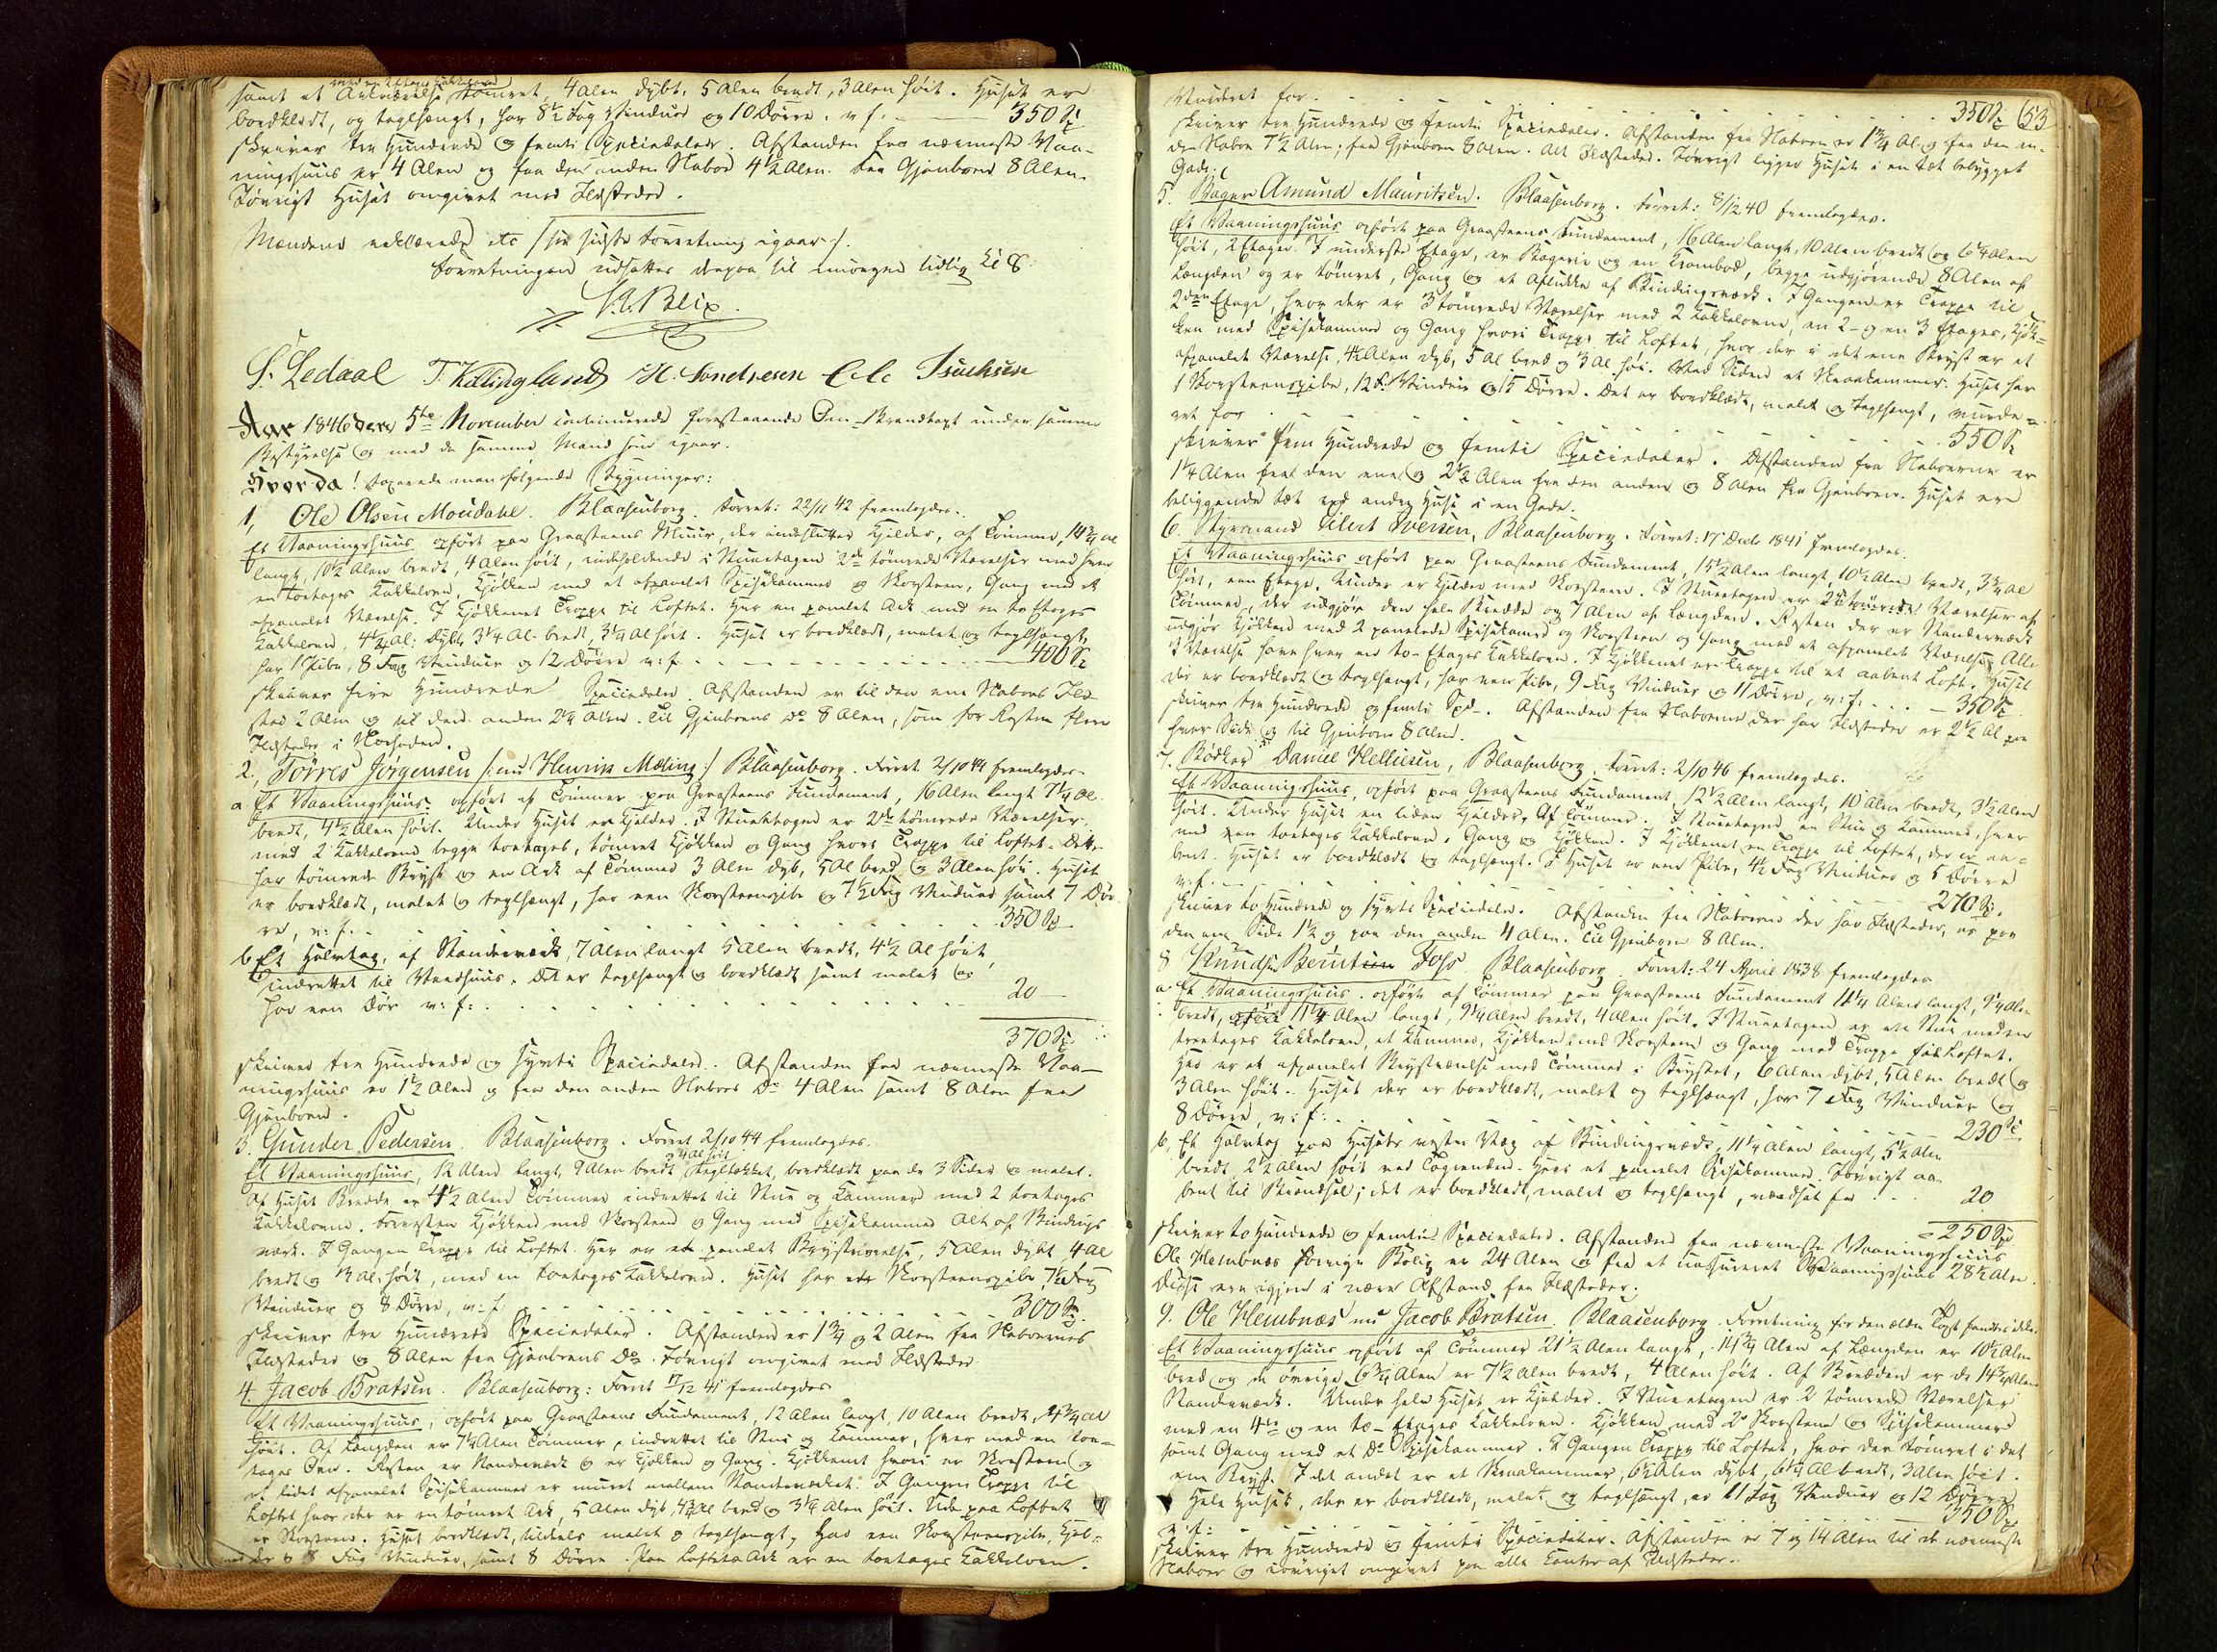 samt et Arkværelse tømret, 4 Alen dybt, 5 Alen bredt, 3 Alen høit. Huset er
med en 2 Etages Kakkelovn
bordklædt, og teglhængt, har 8½ Fag Vinduer og 10 Dørre. v. f. - 350 Sp
skriver tre Hundrede og femti Speciedaler. Afstanden fra nærmeste Vaa-
ningshuus er 4 Alen og fra den anden Nabos 4½ Alen. Fra Gjenboens 8 Alen.
Iøvrigt Huset omgivet med Ildsteder.
Mændene erklærede etc /: see sidste Forretning igaar :/.
Forretningen udsattes derpaa til imorgen tidlig Kl 8.
Blix.
S. Ledaal T. Kellingland H. Sondresen Ole Isachsen
Aar 1846 den 5te November continuerede forestaaende Om-Brandtaxt under samme
Bestyrelse og med de samme Mænd som igaar.
Hvorda! taxerede man følgende Bygninger:
1, Ole Olsen Moudahl. Blaasenborg. Forret: 22/11 42 fremlagdes.
Et Vaaningshuus opført paa Graasteens Muur, der indeslutter Kjelder, af Tømmer, 14¾ al
langt, 10½ Alen bredt, 4 Alen høit, indeholdende i Stueetagen 2de tømrede Værelser med hver
en toetages Kakkelovn, Kjøkken med et afpanelet Spisekammer og Skorsteen, Gang med et
afpanelet Værelse. I Kjøkkenet Trappe til Loftet. Her en panelet Ark med en to Etages
Kakkelovn, 4¼ Al: dybt, 3¼ Al. bredt, 3¼ Al høit. Huset er bordklædt, malet og teglhængt,
har 1 Pibe, 8 Fag Vinduer og 12 Dørre v: f. - 400 Sp
skriver fire Hundrede Speciedaler. Afstanden er til den ene Nabos Ild-
sted 2 Alen og til den anden 2¼ Alen. Til Gjenboens Do 8 Alen, som for Resten flere
Ildsteder i Nærheden.
2., Tørres Jörgensen /: nu Henrik Mæling :/ Blaasenborg. Forret 2/10 44 fremlagdes.
a Et Vaaningshuus. opført af Tømmer paa Graasteens Fundament, 16 Alen langt 7¼ Al.
bredt, 4½ Alen høit. Under Huset er Kjelder. I Stueetagen er 2de tømrede Værelser
med 2 Kakkelovne begge toetages, tømret Kjøkken og Gang hvori Trappe til Loftet. Dette
har tømrede Bryst og en Ark af Tømmer 3 Alen dyb, 5 Al bred og 3 Alen høi. Huset
er bordklædt, malet og teglhængt, har een Skorsteenspibe og 7½ Fag Vinduer samt 7 Dør-
re, v: f. - 350 Sp
b Et Halvtag, af Standerværk, 7 Alen langt 5 Alen bredt, 4½ Al høit,
indrettet til Vaadhuus. Det er teglhængt og bordklædt samt malet og
har een Dør v: f: 20 -
370 Sp.
skriver tre Hundrede og syvti Speciedaler. Afstanden fra nærmeste Vaa-
ningshuus er 1½ Alen og fra den anden Nabos Do 4 Alen samt 8 Alen fra
Gjenboen.
3. Gunder Pedersen. Blaasenborg. Forret 2/10 44 fremlagdes.
Et Vaaningshuus, 12 Alen langt, 9 Alen bredt teglsækket, bordklædt paa de 3 Sider og malet.
Af Huset Bredde er 4½ Alen Tømmer indrettet til Stue og Kammer med 2 toetages
Kakkelovne. Forresten Kjøkken med Skorsteen og Gang med Spisekammer Alt af Bindings
værk. I Gangen Trappe til Loftet. Her er et panelet Brystværelse, 5 Alen dybt, 4 Al
bredt og 3 Al. høit, med en toetages Kakkelovn. Huset har en Skorsteenspibe, 7½ Fag
Vinduer og 8 Dørre, v: f: 300 Sp.
skriver tre Hundrede Speciedaler. Afstanden er 1¾ og 2 Alen fra Naboernes
Ildsteder og 8 Alen fra Gjenboens Do. Iøvrigt omgivet med Ildsteder
4. Jacob Bratsen. Blaasenborg: Forret 17/12 41 fremlagdes
Et Vaaningshuus, opført paa Graasteens Fundament, 12 Alen langt, 10 Alen bredt, 4¾ Al
høit. Af Længden er 7½ Alen Tømmer, indrettet til Stue og Kammer, hver med en toe-
tages Ovn. Resten er Standerværk og er Kjøkken og Gang. Kjøkkenet hvori er Skorsteen og
et lidet afpanelet Spisekammer er muret mellem Standerværket. I Gangen Trappe til
Loftet hvor der er en tømret Ark, 5 Alen dyb, 4¾ Al bred og 3¼ Alen høit. Ude paa Loftet
er Skorsteen. Huset bordklædt, tildeels malet og teglhængt, har een Skorsteenspibe, Kjel-
der og 8 Fag Vinduer, samt 8 Dørre. Paa Loftets Ark er en toetages Kakkelovn.
Vurderet for. 350 Sp 53
skriver tre Hundrede og femti Speciedaler. Afstanden fra Naboen er 1¾ Al. og fra den an-
den Nabo 7½ Alen; fra Gjenboen 8 Alen. Alt Ildsteder. Iøvrigt ligger Huset i en tæt bebygget
Gade.
5. Bager Amund Mauritzen. Blaasenborg. Forret: 8/12 40 fremlagdes.
Et Vaaningshuus opført paa Graasteens Fundament, 16 Alen langt, 10 Alen bredt og 6¼ Alen
høit, 2 Etager. I underste Etage, er Bagerie og en Krambod, begge udgjørende 8 Alen af
Længden og er tømret, Gang og et Aflukke af Bindingsværk. I Gangen er Trappe til
2den Etage, hvor der er 3 tømrede Værelser med 2 Kakkelovne, en 2- og en 3 Etages, Kjøk-
ken med Spisekammer og Gang hvori Trappe til Loftet, hvor der i det ene Bryst er et
afpanelet Værelse, 4½ Alen dyb, 5 Al bred og 3 Al. høi. Ved Siden et Skraakammer. Huset har
1 Skorsteenspibe, 12 F. Vinduer og 15 Dørre. Det er bordklædt, malet og teglhængt, vurde-
ret for 550 Sp
skriver fem Hundrede og femti Speciedaler. Afstanden fra Naboerne er
1¼ Alen fra den ene og 2½ Alen fra den anden og 8 Alen fra Gjenboen. Huset er
beliggende tæt ved andre Huse i en Gade.
6. Styrmand Eilert Iversen, Blaasenborg. Forret: 17 Decb 1841 fremlagdes.
Et Vaaningshuus opført paa Graasteens Fundament, 15½ Alen langt, 10½ Alen bredt, 3¾ Al
høit, een Etage. Under er Kjelder med Skorsteen. I Stueetagen er 2de tømrede Værelser af
Tømmer, der udgjør den hele Bredde og 7 Alen af Længden. Resten der er Standerværk
udgjør Kjøkken med 2 panelede Spisekamre og Skorsteen og Gang med et afpanelet Værelse. Alle
3 Værelser have hver en to-Etages Kakkelovn. I Kjøkkenet er Trappe til et aabent Loft. Huset
der er bordklædt og teglhængt, har een Pibe, 9 Fag Vinduer og 11 Dørre, v: f. - 350 Sp
skriver tre Hundrede og femti Spd. Afstanden fra Naboerne der har Ildsteder er 2½ Al paa
hver Side og til Gjenboen 8 Alen.
7. Bødker Daniel Helliesen, Blaasenborg, Forret: 2/10 46 fremlagdes.
Et Vaaningshuus, opført paa Graasteens Fundament, 12½ Alen langt, 10 Alen bredt, 3½ Alen
høit. Under Huset en liden Kjelder. Af Tømmer. I Stueetagen en Stue og Kammer, hver
med een toetages Kakkelovn, Gang og Kjøkken. I Kjøkkenet en Trappe til Loftet, der er aa-
bent. Huset er bordklædt og teglhængt. I Huset er een Pibe, 4½ Fag Vinduer og 5 Dørre
v: f. 270 Sp.
skriver to Hundrede og syvti Speciedaler. Afstanden fra Naboerne der har Ildsteder, er paa
den ene Side 1½ og paa den anden 4 Alen. Til Gjenboen 8 Alen.
8 Knudsen Berntsen Foss Blaasenborg. Forret: 24 April 1838 fremlagdes
a. Et Vaaningshuus. opført af Tømmer paa Graasteens Fundament 11¼ Alen langt, 9¼ Alen
bredt, 11¼ Alen langt, 9¼ Alen bredt, 4 Alen høit. I Stueetagen er en Stue med en
treetages Kakkelovn, et Kammer, Kjøkken med Skorsteen og Gang med Trappe til Loftet.
Her er et afpanelet Brystværelse med Tømmer i Brystet, 6 Alen dybt, 5 Alen bredt og
3 Alen høit. Huset der er bordklædt, malet og teglhængt, har 7 Fag Vinduer og
8 Dørre, v: f: 230 Sp.
b, Et Halvtag paa Husets vestre Væg af Bindingsværk, 11¼ Alen langt, 5½ Alen
bredt, 2½ Alen høit ved Tagrenden. Heri et panelet Spisekammer. Iøvrigt aa-
bent til Brændsel; det er bordklædt, malet og teglhængt, værdsat for 20
250 Sp
skriver to Hundrede og femti Speciedaler. Afstanden fra nærmeste Vaaningshuus
Ole Hembnæs forrige Bolig er 24 Alen og fra et uassureret Vaaningshuus 28½ Alen.
Disse ere igjen i nær Afstand fra Ildsteder.
9. Ole Hembnæs nu Jacob Bratsen. Blaasenborg. Forretning for den ældre Taxt fandtes ikke.
Et Vaaningshuus opført af Tømmer 21½ Alen langt, 14¾ Alen af Længden er 10½ Alen
bred og de øvrige 6¾ Alen er 7½ Alen bredt, 4 Alen høit. Af Bredden er de 14¾ Alen
Standerværk. Under hele Huset er Kjelder. I Stueetagen er 2 tømrede Værelser
med en 4re og en to-Etages Kakkelovn. Kjøkken med 2 Skorstene og Spisekammer
samt Gang med et Do Spisekammer. I Gangen Trappe til Loftet, hvor der tømret i det
ene Bryst. I det andet er et Skraakammer, 6½ Alen dybt, 6¼ Al bredt, 3 Alen høit.
Hele Huset, der er bordklædt, malet og teglhængt, er 11 Fag Vinduer og 12 Dørre
v: f: 350 Sp
skriver tre Hundrede og femti Speciedaler. Afstanden er 7 og 14 Alen til de nærmeste
Naboer og iøvrigt omgivet paa alle Kanter af Ildsteder.